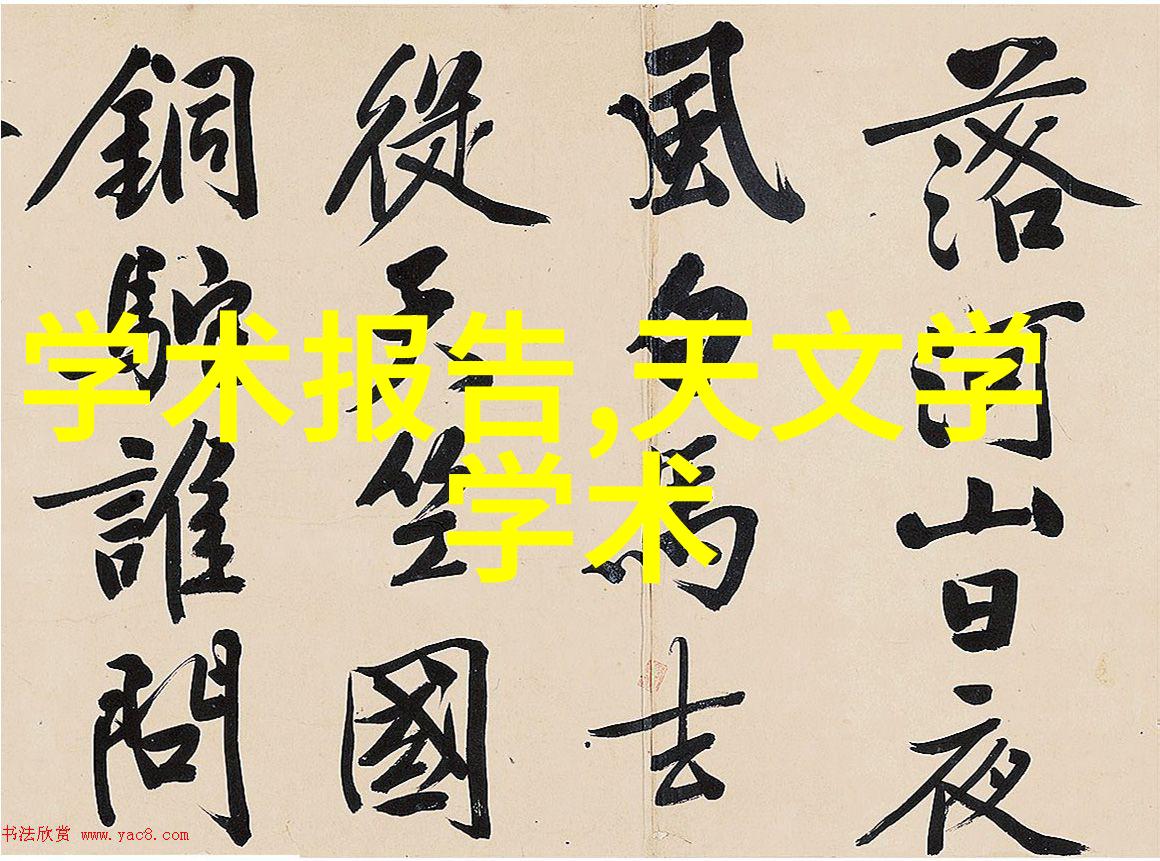 落河山日夜
風白馬去
從天竺國
銅駝誰問
学术报告,天文学
学术
书法欣赏 www.yac8.com